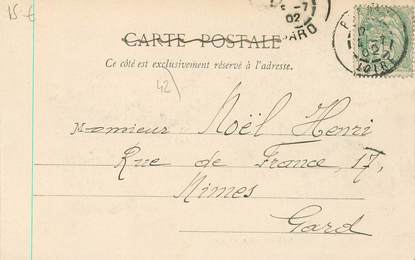 15-€
-7
02
GARD
-7
02
LOIRE
CARTE POSTALE
Ce côté est exclusivement réservé à l'adresse.
42
Monsieur Noël Henri
Rue de France, 17,
Nimes
Gard